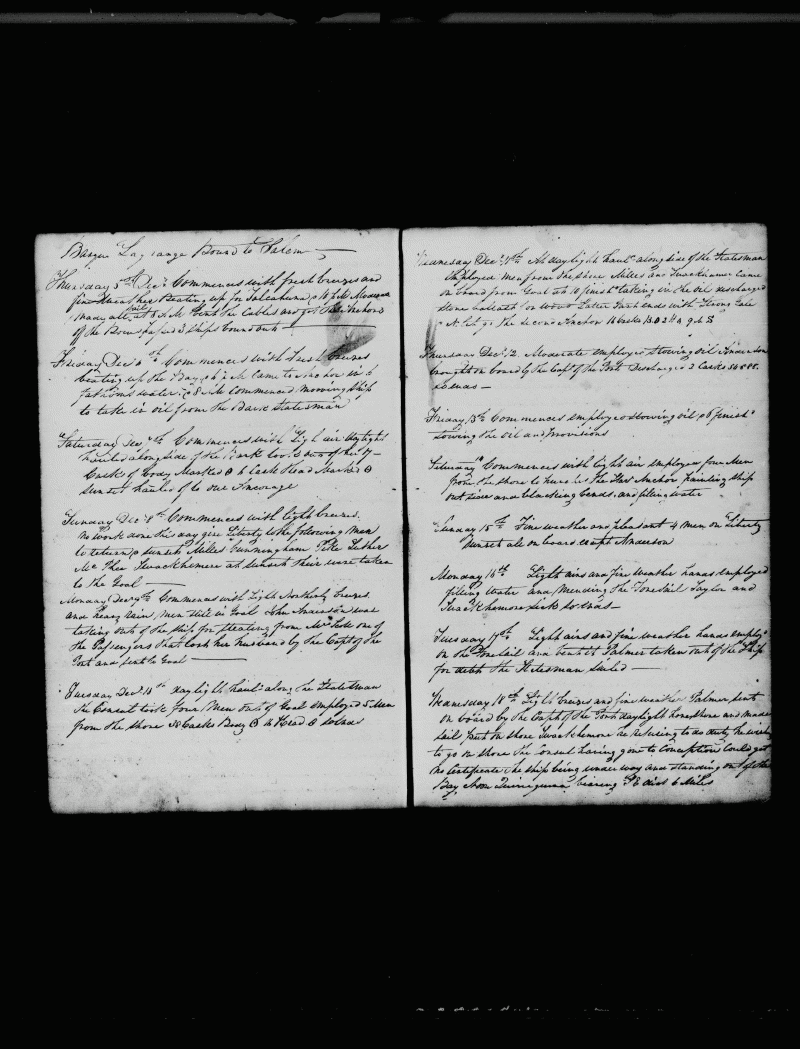 Barque Lagrange Bound to Salem
Thursday 5th Decr Commences with fresh breezes and
fine weather Beating up for Talcahuna 4 P.M. Moderate
made all sail at 8 A.M. bent the Cables and got the Anchors
of the Bows passed 2 ships bound out
Friday Dec 6th Commences with fresh breezes
beating up the Bay, 6 P.M. Came to Anchor in 6
fathoms water. 8 A.M. commenced mooring ship
to take in oil from the Bark Statesman
Saturday Dec 7th Commences with Ligh air daylight
hauled along side of the Bark out of her 17
Casks of body Marked 6 Casks Head Marked
sunset hauled of to our Ancorage
Sunday Decr 8th Commences with light breezes.
No work done this day give Liberty to the following men
to return @ sunset Milles Cunningham Pike Lesher
Mc Phee Twackhemere at sunset their were taken
to the Goal
Monday Dec 9th Commences with Light Northerly breezes
and heavy rain, men still in Goal John Anderson was
taking out of the ship for stealing from Mrs one of
the Passengers that took her husband by the Capt of the
Port and sent to Goal
Tuesday Decr 10th daylight hauld along the Statesman
the Consul took four Men out of Goal employed 5 Men
from the shore 38 Casks Body 16 Head
Wednesday Decr 11th At daylight hauld along side of the Statesman
employed men from the shore Milles and Twackhamer came
on board from Goal at 10 finishd taking in the oil discharged
stone ballast for wood Latter Part ends with Strong Gale
at Let go the second Anchor 16 Casks
Thursday Decr 12 Moderate employed stowing oil Anderson
brought on board by the Capt of the Port Discharged 2 Casks
so ends
Friday 13th Commences employed stowing oil @ 6 finishd
stowing the oil and provisions
Saturday 14 Commences with light air employed four Men
from the shore to the Anchor painting ship
out side and blacking bends. and filling water
Sunday 15th Fine weather and pleasant 4 men on Liberty
Sunset all on board except Anderson
Monday 16th Light airs and fine weather hands employed
filling water and Mending the Foresail Taylor and
Twackhemore sick so ends
Tuesday 17th Light airs and fine weather hands employd
on the Foresail and bent it Palmer taken out of the Ship
for debt the Statesman Sailed
Wednesday 18th Light breezes and fine weather Palmer sent
on board by the Capt of the Port daylight hove short and made
sail put on shore Twackhemore he refusing to do duty he wishd
to go on shore the Consul having gone to Conception Could get
no Certificate the ship being under way and standing out of the
Bay, Noon Quinquina bearing SE dist 6 Miles